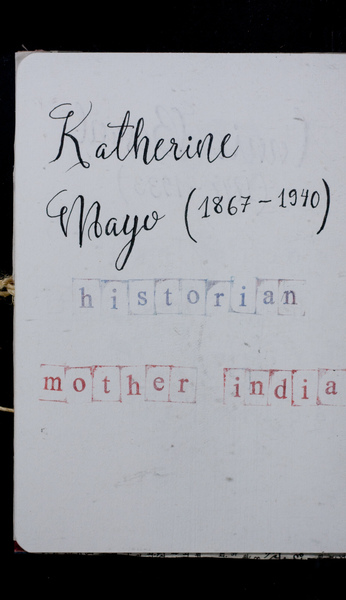 Katherine
Mayo (1867-1940)
historian
mother india